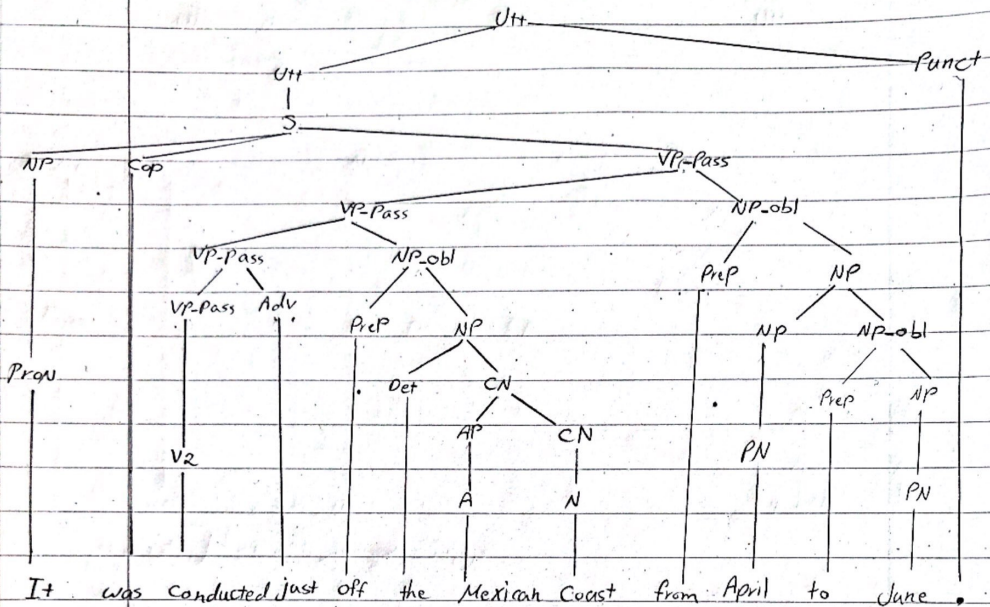 Utt
Utt Punct
S
NP Cop VP-Pass
VP-Pass NP_obl
VP-Pass NP_obl Prep NP
VP-Pass Adv Prep NP NP NP_obl
PronN Det CN Prep NP
AP CN
V2 PN
A N PN
It was conducted just off the Mexican Coast from April to June .